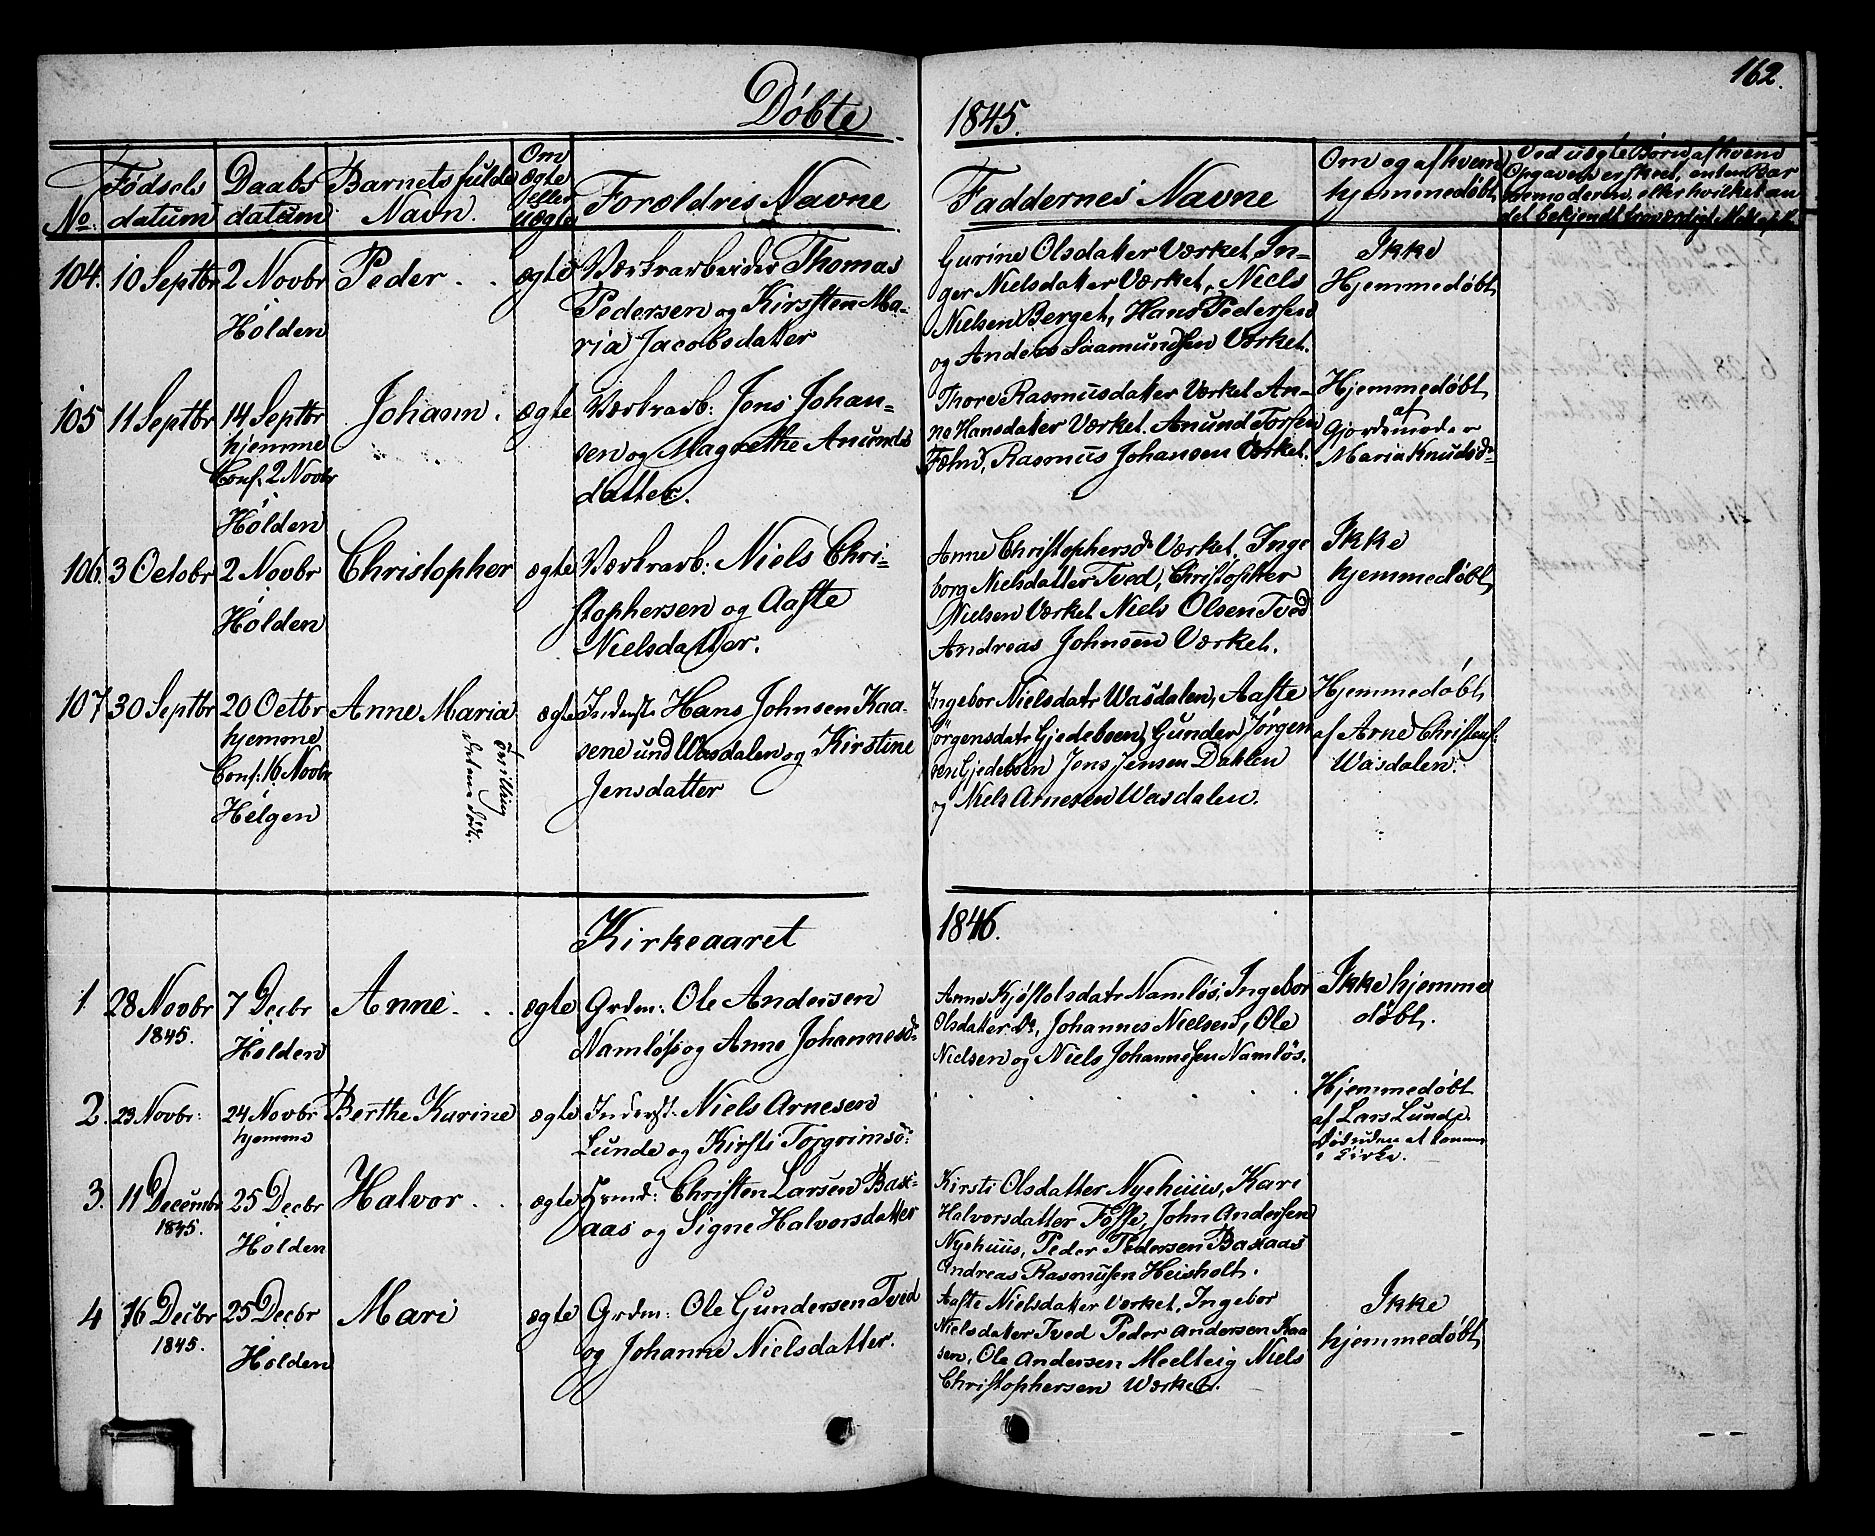 162.
Döbte 1845.
No. Fødsels datum Daabs datum Barnets fulde Navn. Om ægte eller uægte Forældres Navne Faddernes Navne Om og af hvem hjemmedøbt Ved uægte Børn af hvem Opgaven er skeet, enten Bar
nemoderen, eller hvilket an
det bekjendt troværdigt Msk.
104. 10 Septbr 2 Novbr Peder . . ægte Værksarbeider Thomas
Hölden
Pedersen og Kirsten Ma-
ria Jacobsdatter
Gurine Olsdatter Værket, In-
ger Nielsdatter Værket, Niels
Nielsen Berget, Hans Pedersen
og Anders Saamundsen Værket.
Ikke
Hjemmedøbt
105 11 Septbr 14 Septbr Johann. ægte Værksarb: Jens Johan-
hjemme
Conf. 2 Novbr
Hölden
sen og Magrethe Anunds
datter.
Thore Rasmusdatter Værket An-
ne Hansdatter Værket. Anund Torsen
Rasmus Johansen Værket.
Hjemmedøbt
af
Gjordemoder
Maria Knudsdr
106. 3 Octobr 2 Novbr Christopher ægte Værksarb: Niels Chri-
Hölden
stophersen og Aaste
Nielsdatter.
Anne Christophersdr Værket, Inge
borg Nielsdatter Tved, Christopher
Nielsen Værket Niels Olsen Tved
Andreas Johnsen Værket.
Ikke
hjemmedøbt
107 30 Septbr 20 Octbr Anne Maria ægte Inderst: Hans Johnsen Kaa-
hjemme
Conf: 16 Novbr
Helgen
Tvilling
den anden død.
sene und Wasdalen og Kirstine
Jensdatter
Ingebor Nielsdatr Wasdalen, Aaste
Jörgensdatr Gjedeboen, Gunder Jörgen
sen Gjedeboen Jens Jensen Dahlen
og Niels Arnesen Wasdalen.
Hjemmedøbt
af Arne Christens.
Wasdalen.
Kirkeaaret 1846.
1 28 Novbr 7 Decbr Anne . . . ægte Grdm: Ole Andersen
1845. Hölden
Namløs og Anne Johannesdr
Anne Kjøstolsdatr Namløs, Ingebor
Olsdatter Do, Johannes Nielsen, Ole
Nielsen og Niels Johannesen Namløs.
Ikke hjemme
døbt.
2. 23 Novbr: 24 Novbr Berthe Karine ægte Inderst: Niels Arnesen
hjemme
Lunde og Kirsti Torgrimsd:
Hjemmedøbt
af Lars Lunde.
Død uden at komme
i Kirke.
3. 11 Decembr 25 Decbr Halvor . . ægte Grmd: Christen Larsen Bax-
1845. Hölden
aas og Signe Halvorsdatter
Kirsti Olsdatter Nyehuus, Kari
Halvorsdatter Fosse, John Andersen
Nyehuus, Peder Pedersen Baxaas
Andreas Rasmusen Heisholt.
4 16 Decbr 25 Decbr Mari ægte Grdm: Ole Gundersen Tved
1845. Hölden
og Johanne Nielsdatter.
Aaste Nielsdatter Værket, Ingebor
Nielsdatter Tved Peder Andersen Kaa
sen, Ole Andersen Meelteig Niels
Christophersen Værket.
Ikke
hjemmedøbt